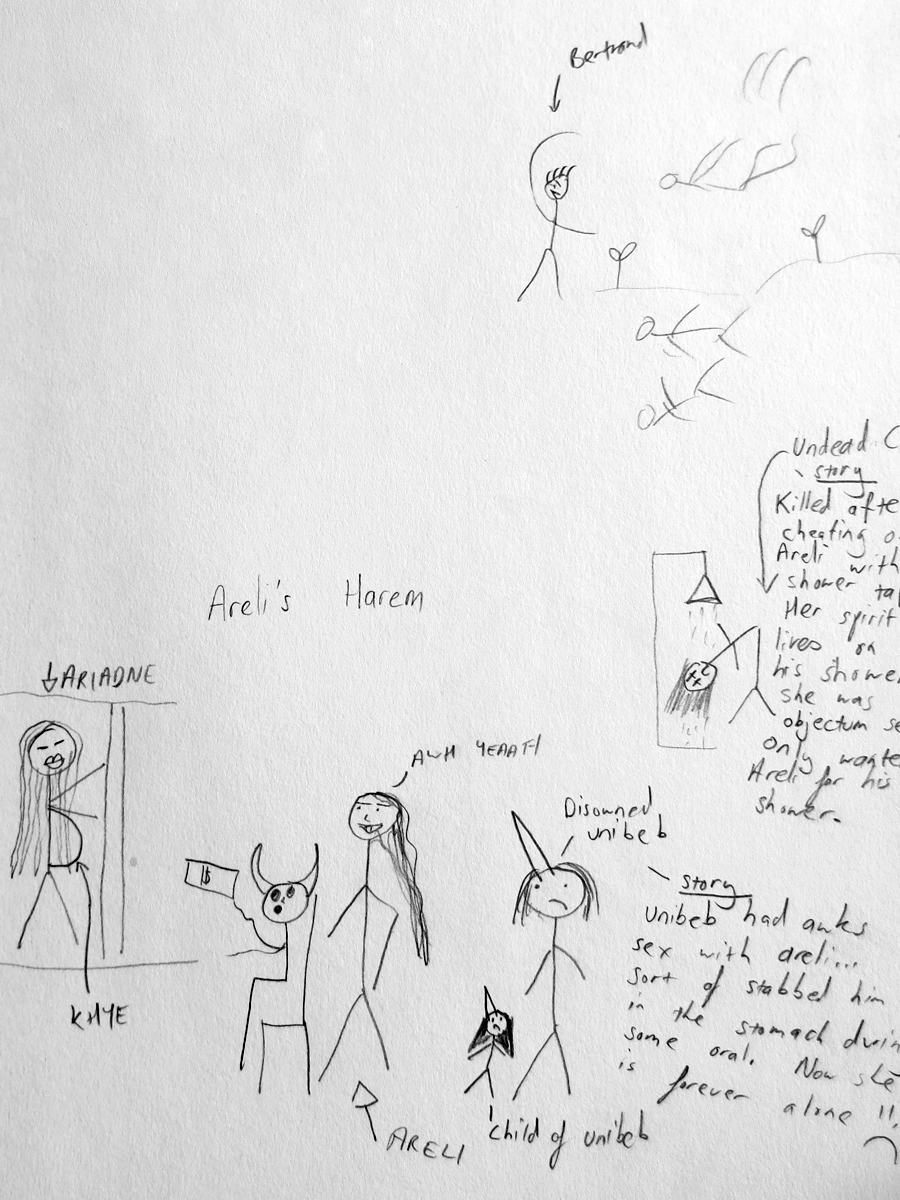 Bertrand
Undead C
story
Killed afte
cheating o
Areli with
shower ta
Her spirit
lives on
his shower
she was
objectum se
only wante
Areli for his
shower.
Areli's Harem
ARIADNE
AWH YEAAH
$
KHYE
Disowned
unibeb
story
unibeb had awks
sex with areli...
sort of stabbed him
in the stomach durin
some oral. Now she
is forever alone !!
ARELI
child of unibeb